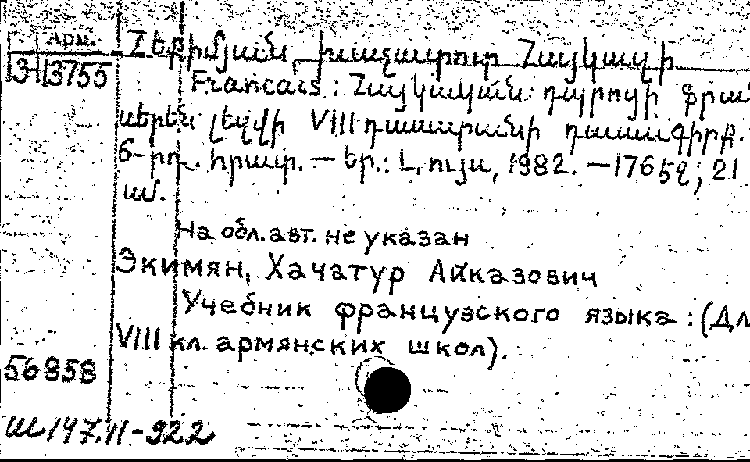 Арм.
13-13755
Հեքիմյան, Խաչատուր Հայկազի
Francais: Հայկական դպրոցի ֆրան
սերեն լեզվի VIII դասարանի դասագիրք.
6-րդ. հրատ. — Եր.: Լույս, 1982. — 176 էջ; 21
սմ.
На обл. авт. не указан
Экимян, Хачатур Айказович
Учебник французского языка: (Дл
VIII кл. армянских школ).
56858
Ш147.11-922